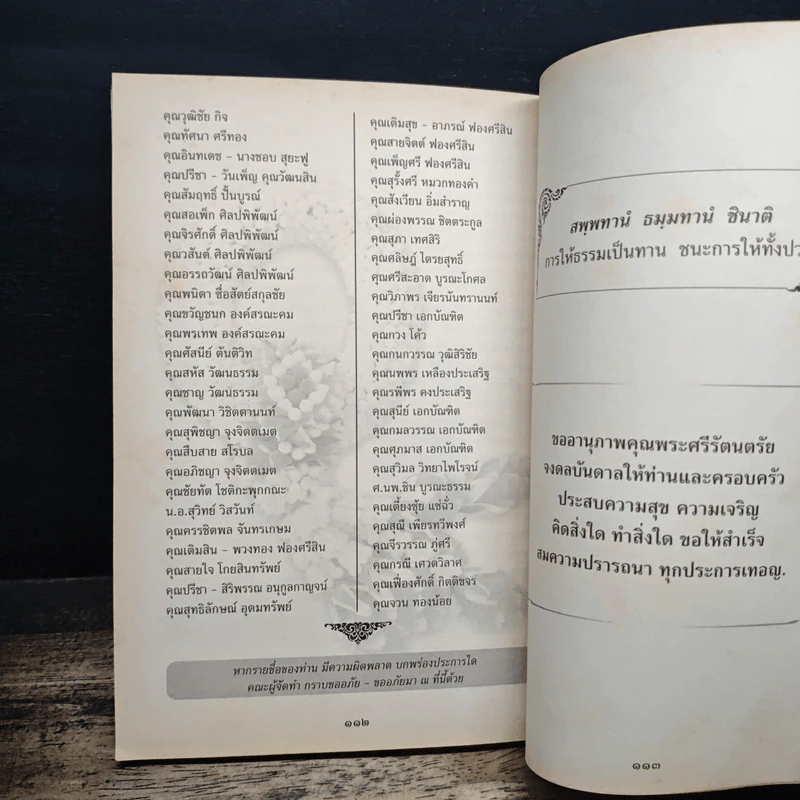 คุณวุฒิชัย กิจ
คุณทัศนา ศรีทอง
คุณอินทเดช - นางชอบ สุยะฟู
คุณปรีชา - วันเพ็ญ คุณวัฒนสิน
คุณสัมฤทธิ์ ปั้นบูรณ์
คุณสอเพ็ก ศิลปพิพัฒน์
คุณจิรศักดิ์ ศิลปพิพัฒน์
คุณวสันต์ ศิลปพิพัฒน์
คุณอรรถวัฒน์ ศิลปพิพัฒน์
คุณพนิดา ซื่อสัตย์สกุลชัย
คุณขวัญชนก องค์สรณะคม
คุณพรเทพ องค์สรณะคม
คุณศัสนีย์ ตันติวิท
คุณสหัส วัฒนธรรม
คุณชาญ วัฒน์ธรรม
คุณพัฒนา วิชิตตานนท์
คุณสุพิชญา จุงจิตตเมต
คุณสืบสาย สโรบล
คุณอภิชญา จุงจิตตเมต
คุณชัยทัต โชติกะพุกกณะ
น.อ.สุวิทย์ วิสวันท์
คุณครรชิตพล จันทรเกษม
คุณเติมสิน - พวงทอง ฟองศรีสิน
คุณสายใจ โกยสินทรัพย์
คุณปรีชา - สิริพรรณ อนุกูลกาญจน์
คุณสุทธิลักษณ์ อุดมทรัพย์
คุณเติมสุข - อาภรณ์ ฟองศรีสิน
คุณสายจิตต์ ฟองศรีสิน
คุณเพ็ญศรี ฟองศรีสิน
คุณสุรั้งศรี หมวกทองคำ
คุณสังเวียน อิ่มสำราญ
คุณผ่องพรรณ ชิตตระกูล
คุณสุภา เทศสิริ
คุณศลิษฎ์ ไตรยสุทธิ์
คุณศรีสะอาด บูรณะโกศล
คุณวิภาพร เจียรนันทรานนท์
คุณปรีชา เอกบัณฑิต
คุณกวง โค้ว
คุณกนกวรรณ วุฒิสิริชัย
คุณนพพร เหลืองประเสริฐ
คุณรพีพร คงประเสริฐ
คุณสุนีย์ เอกบัณฑิต
คุณกมลวรรณ เอกบัณฑิต
คุณศุภมาส เอกบัณฑิต
คุณสุวิมล วิทยาไพโรจน์
ศ.นพ.ชิน บูรณะธรรม
คุณเตี้ยงซุ้ย แซ่ฉั่ว
คุณสุณี เพียรทวีพงศ์
คุณจีรวรรณ ภู่ศรี
คุณกรณี เศวตวิลาศ
คุณเฟื่องศักดิ์ กิตติขจร
คุณจวน ทองน้อย
หากรายชื่อของท่าน มีความผิดพลาด บกพร่องประการใด
คณะผู้จัดทำ กราบขออภัย - ขออภัยมา ณ ที่นี้ด้วย
๑๑๒
สพฺพทานํ ธมฺมทานํ ชินาติ
การให้ธรรมเป็นทาน ชนะการให้ทั้งปว
ขออานุภาพคุณพระศรีรัตนตรัย
จงดลบันดาลให้ท่านและครอบครัว
ประสบความสุข ความเจริญ
คิดสิ่งใด ทำสิ่งใด ขอให้สำเร็จ
สมความปรารถนา ทุกประการเทอญ.
๑๑๓